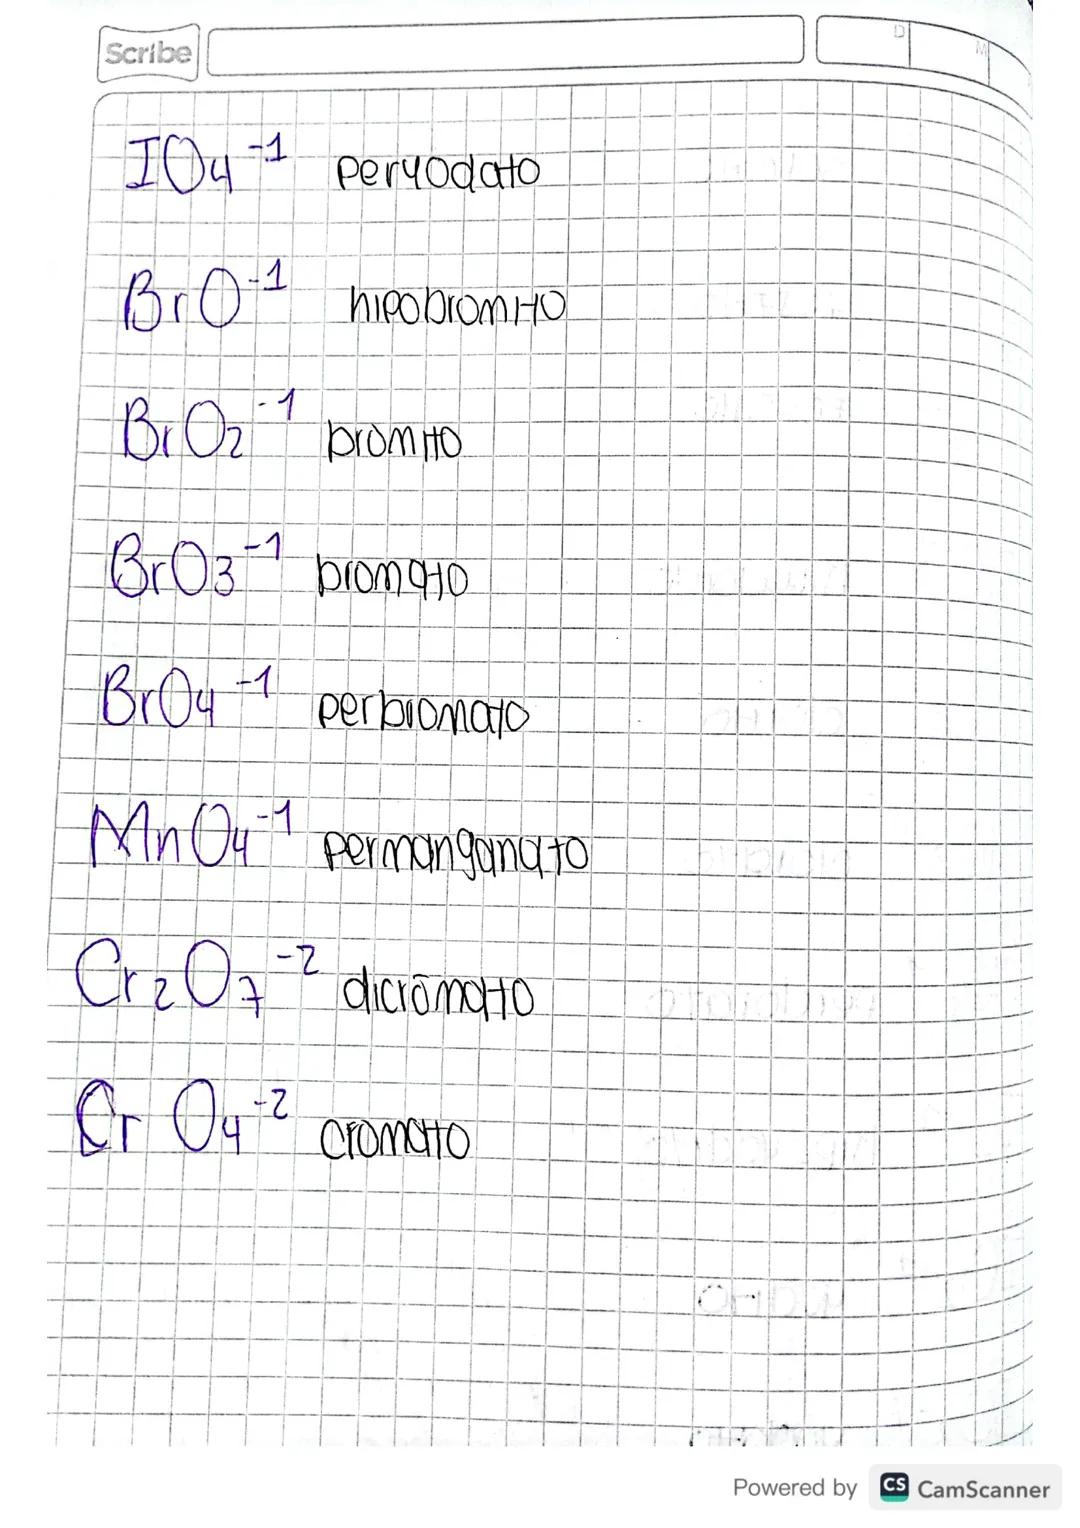 Scribe
D M
IO4⁻¹ peryodato
BrO⁻¹ hipobromito
BrO2⁻¹ bromito
BrO3⁻¹ bromato
BrO4⁻¹ perbromato
MnO4⁻¹ permanganato
Cr2O7⁻² dicromato
CrO4⁻² cromato
Powered by CS CamScanner